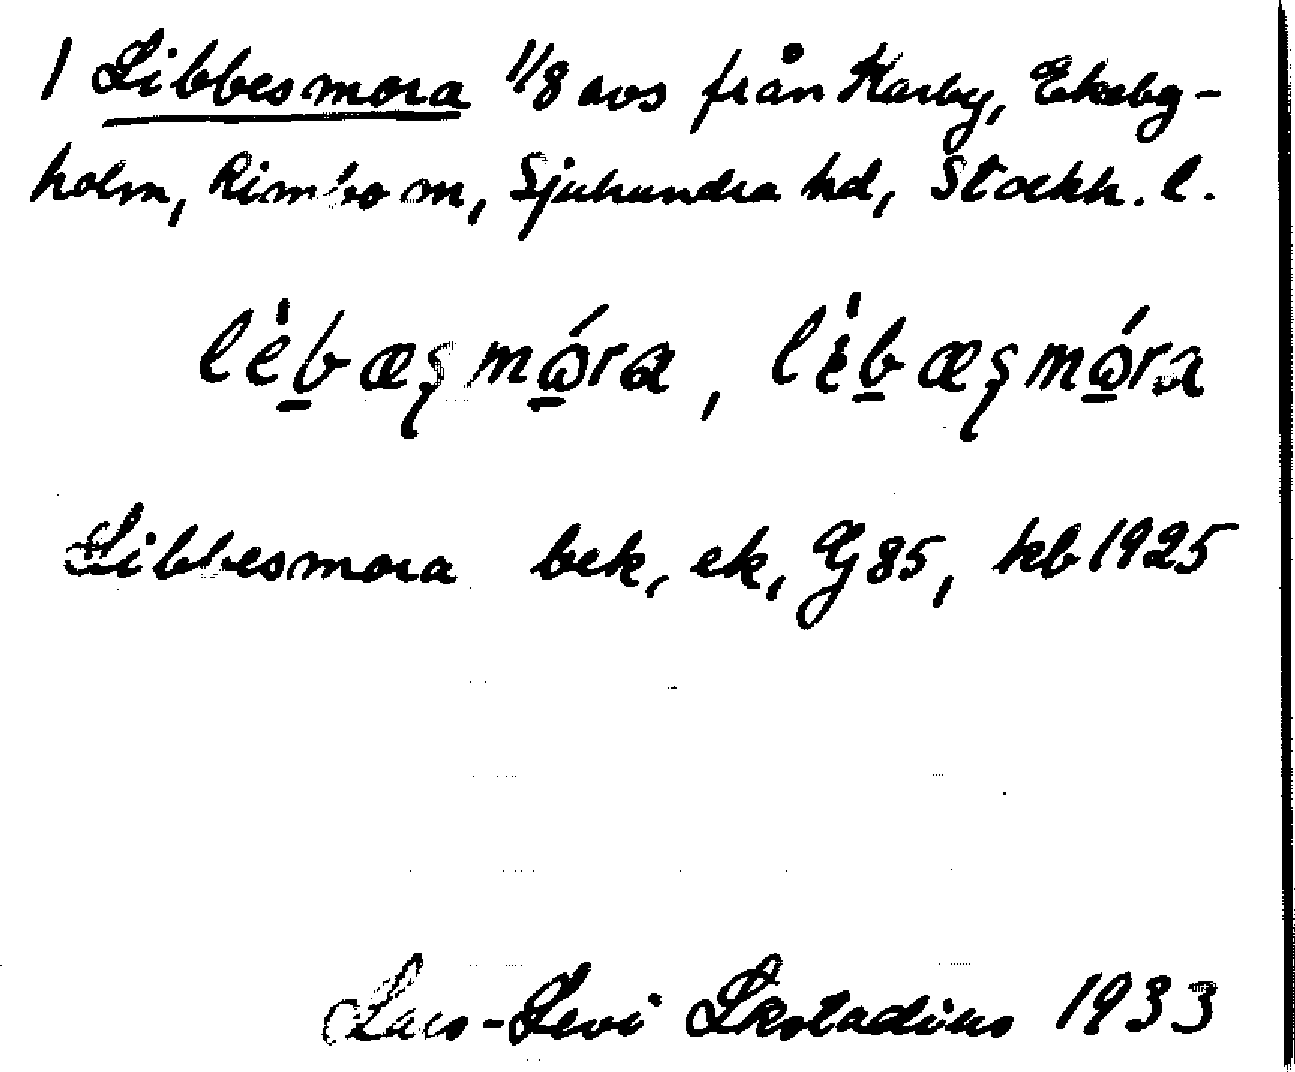 1 Libbesmora 1/8 avs från Karby, Ekeby-
holm, Rimbo sn, Sjuhundra hd, Stockh. l.
Libbesmora bek, ek, G 85, kb 1925
Lars-Levi Læstadius 1933